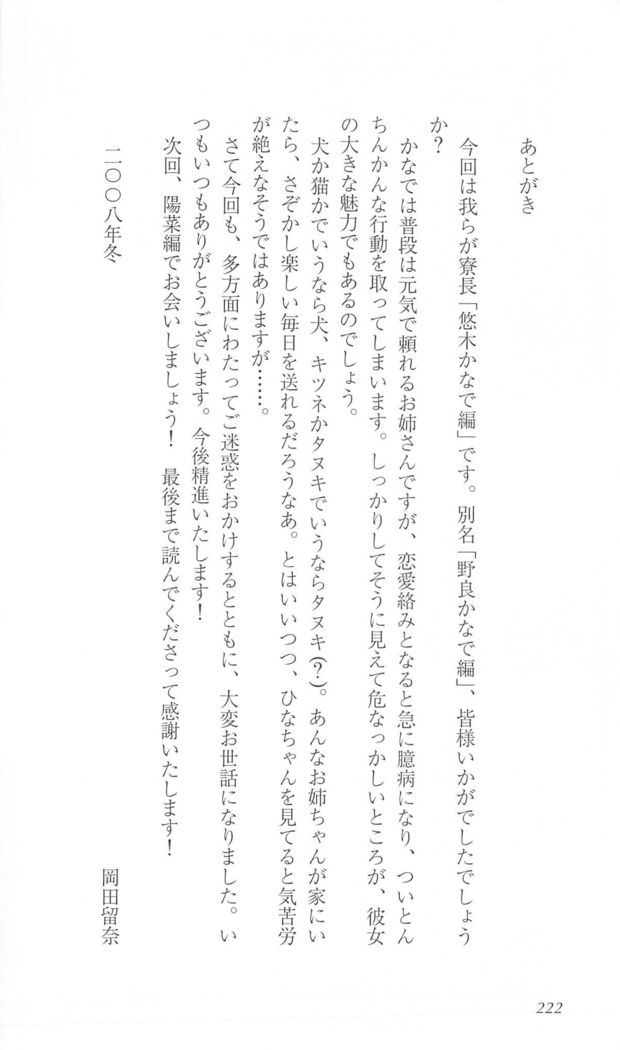 あとがき
　今回は我らが寮長「悠木かなで編」です。別名「野良かなで編」、皆様いかがでしたでしょう
か？
　かなでは普段は元気で頼れるお姉さんですが、恋愛絡みとなると急に臆病になり、ついとん
ちんかんな行動を取ってしまいます。しっかりしてそうに見えて危なっかしいところが、彼女
の大きな魅力でもあるのでしょう。
　犬か猫かでいうなら犬、キツネかタヌキでいうならタヌキ(？)。あんなお姉ちゃんが家にい
たら、さぞかし楽しい毎日を送れるだろうなあ。とはいいつつ、ひなちゃんを見てると気苦労
が絶えなそうではありますが……。
　さて今回も、多方面にわたってご迷惑をおかけするとともに、大変お世話になりました。い
つもいつもありがとうございます。今後精進いたします！
　次回、陽菜編でお会いしましょう！　最後まで読んでくださって感謝いたします！
二〇〇八年冬
岡田留奈
222